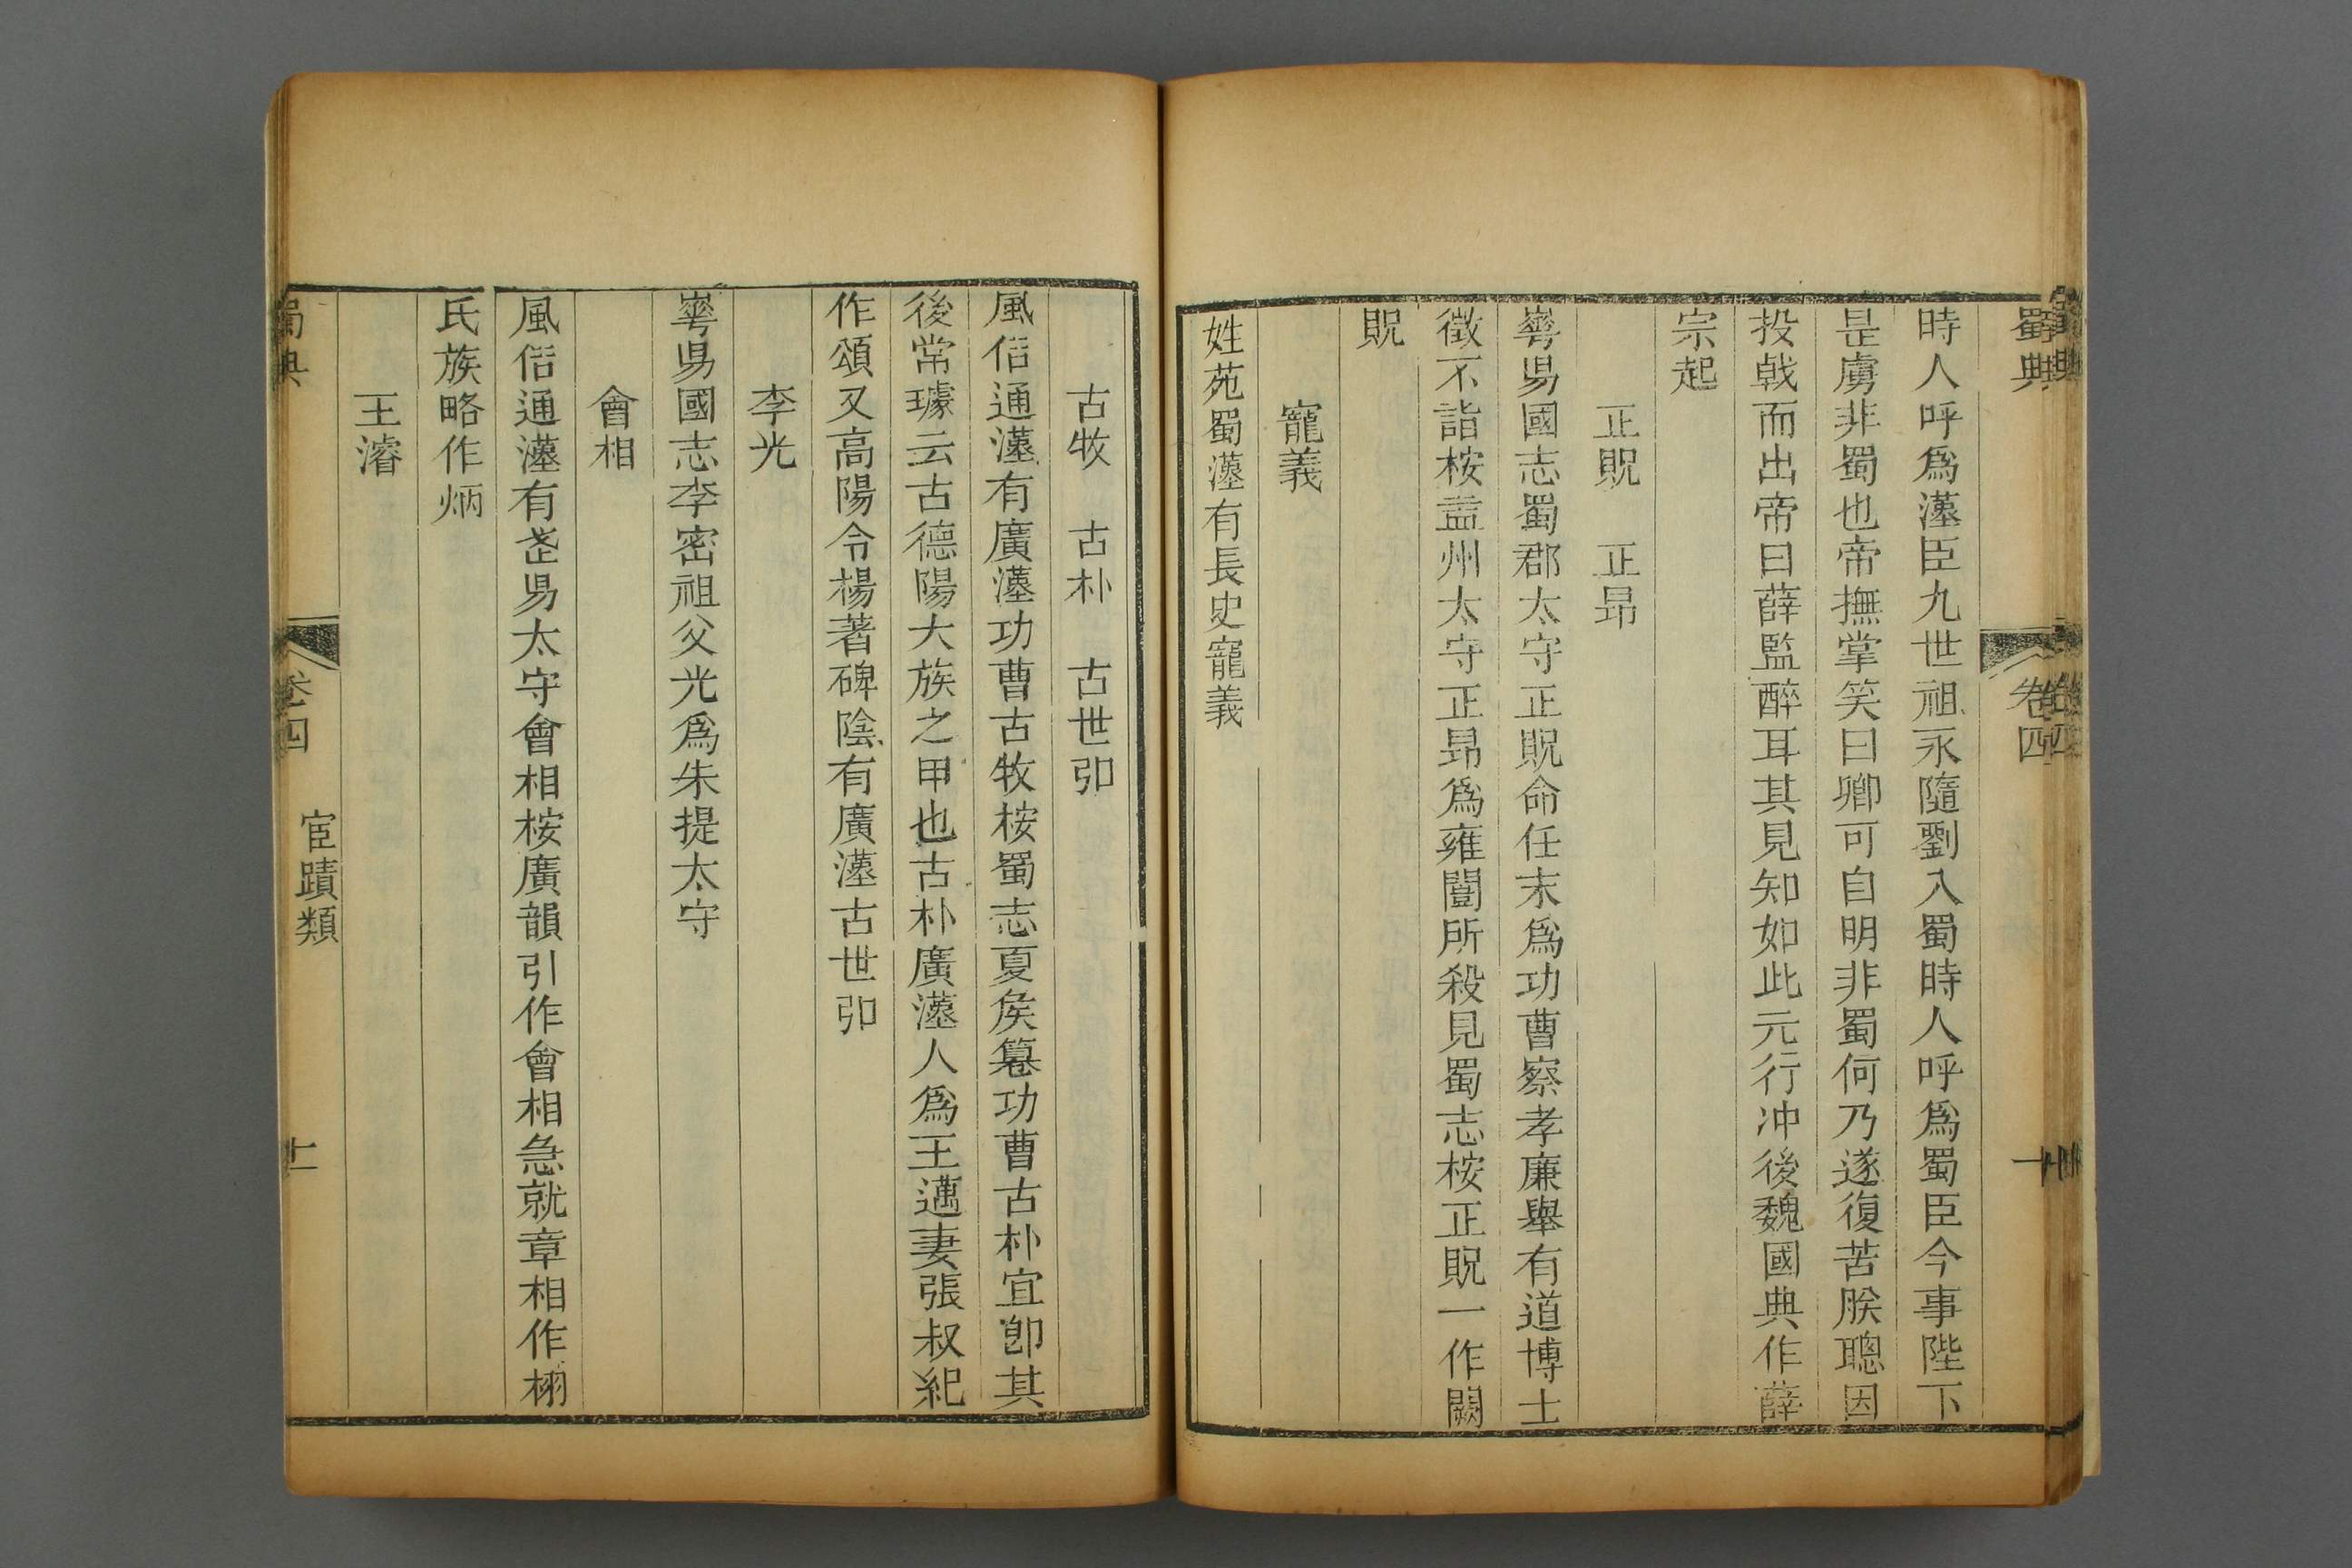 蜀典
卷四
十
時人呼爲漢臣九世祖永隨劉入蜀時人呼爲蜀臣今事陛下
是虜非蜀也帝撫掌笑曰卿可自明非蜀何乃遂復苦朕聰因
投戟而出帝曰薛監醉耳其見知如此元行冲後魏國典作薛
宗起
正貺　正昂
崋昜國志蜀郡太守正貺命任末爲功曹察孝廉舉有道博士
徵不詣桉益州太守正昂爲雍闓所殺見蜀志桉正貺一作闕
貺
寵義
姓苑蜀漢有長史寵義
古牧　古朴　古世卬
風俗通漢有廣漢功曹古牧桉蜀志夏矦纂功曹古朴宜卽其
後常璩云古德陽大族之甲也古朴廣漢人爲王遵妻張叔紀
作頌又高陽令楊著碑陰有廣漢古世卬
李光
崋昜國志李密祖父光爲朱提太守
會相
風俗通漢有武昜太守會相桉廣韻引作會相急就章相作栩
氏族略作炳
王濬
蜀典
卷四
宦蹟類
十一